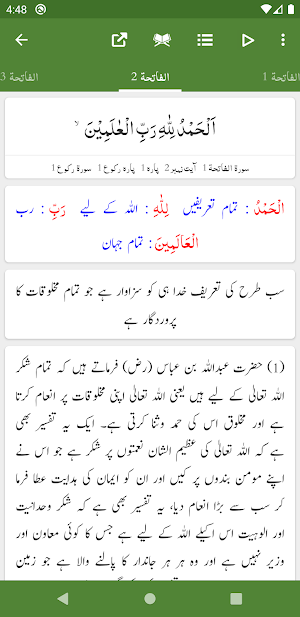 4:48
الفاتحة 1
الفاتحة 2
الفاتحة 3
اَلْحَمْدُ لِلّٰهِ رَبِّ الْعٰلَمِیْنَ ۙ
سورة الفاتحة 1 آیت نمبر 2 پارہ 1 پارہ رکوع 1 سورۃ رکوع 1
الْحَمْدُ : تمام تعریفیں لِلّٰهِ : اللہ کے لیے رَبِّ : رب
الْعَالَمِیْنَ : تمام جہان
سب طرح کی تعریف خدا ہی کو سزاوار ہے جو تمام مخلوقات کا
پروردگار ہے
(1) حضرت عبداللہ بن عباس (رض) فرماتے ہیں کہ تمام شکر
اللہ تعالیٰ کے لیے ہیں یعنی اللہ تعالیٰ اپنی مخلوقات پر انعام کرتا
ہے اور مخلوق اس کی حمد وثنا کرتی ہے۔ ایک یہ تفسیر بھی
ہے کہ اللہ تعالیٰ کی عظیم الشان نعمتوں پر شکر ہے جو اس نے
اپنے مومن بندوں پر کیں اور ان کو ایمان کی ہدایت عطا فرما
کر سب سے بڑا انعام دیا، یہ تفسیر بھی ہے کہ شکر وحدانیت
اور الوہیت اس اکیلے اللہ کے لیے ہے جس کا کوئی معاون اور
وزیر نہیں ہے اور وہ ہر ہر جاندار کا پالنے والا ہے جو زمین